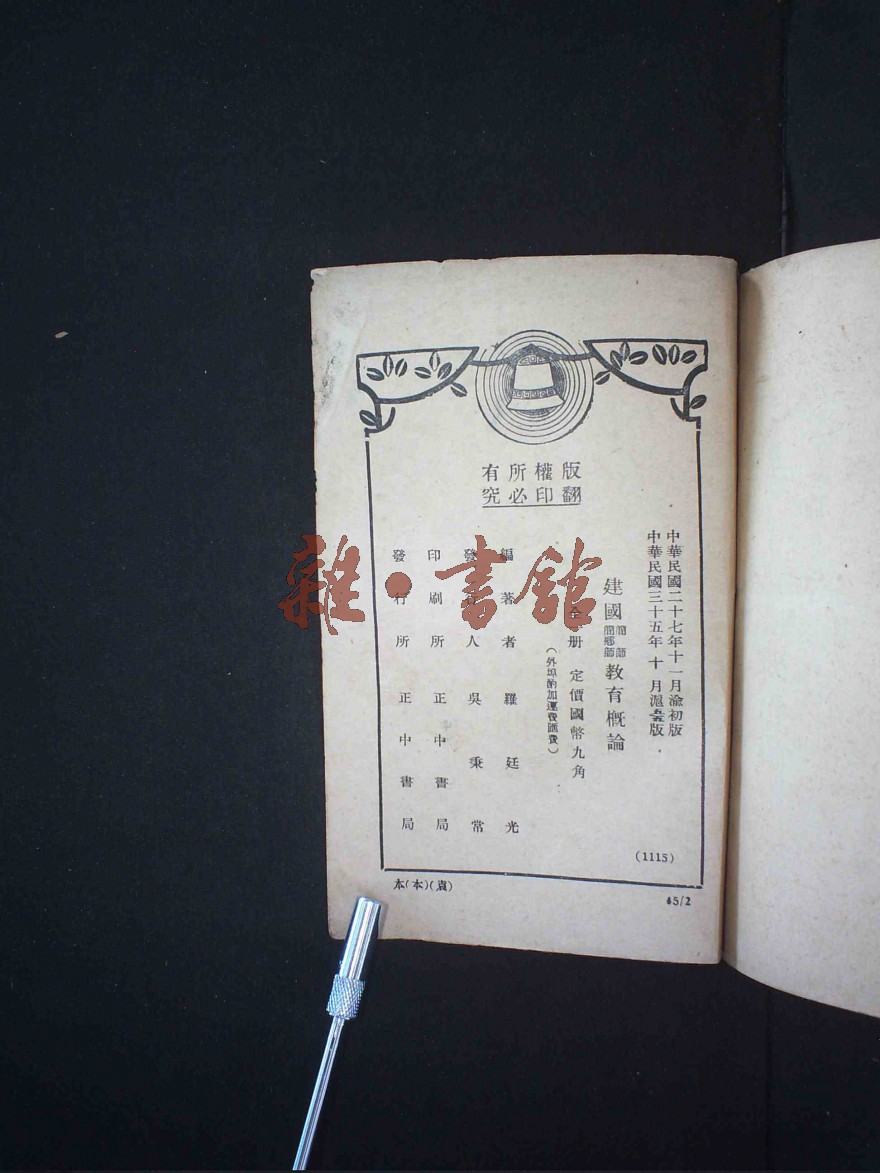 版權所有
翻印必究
中華民國二十七年十一月渝初版
中華民國三十五年十月滬五版
建國簡師簡鄉師教育概論
全一册 定價國幣九角
(外埠酌加運費匯費)
編著者 羅廷光
發行人 吳秉常
印刷所 正中書局
發行所 正中書局
(1115)
本(本)(袁)
45/2
雜·書館